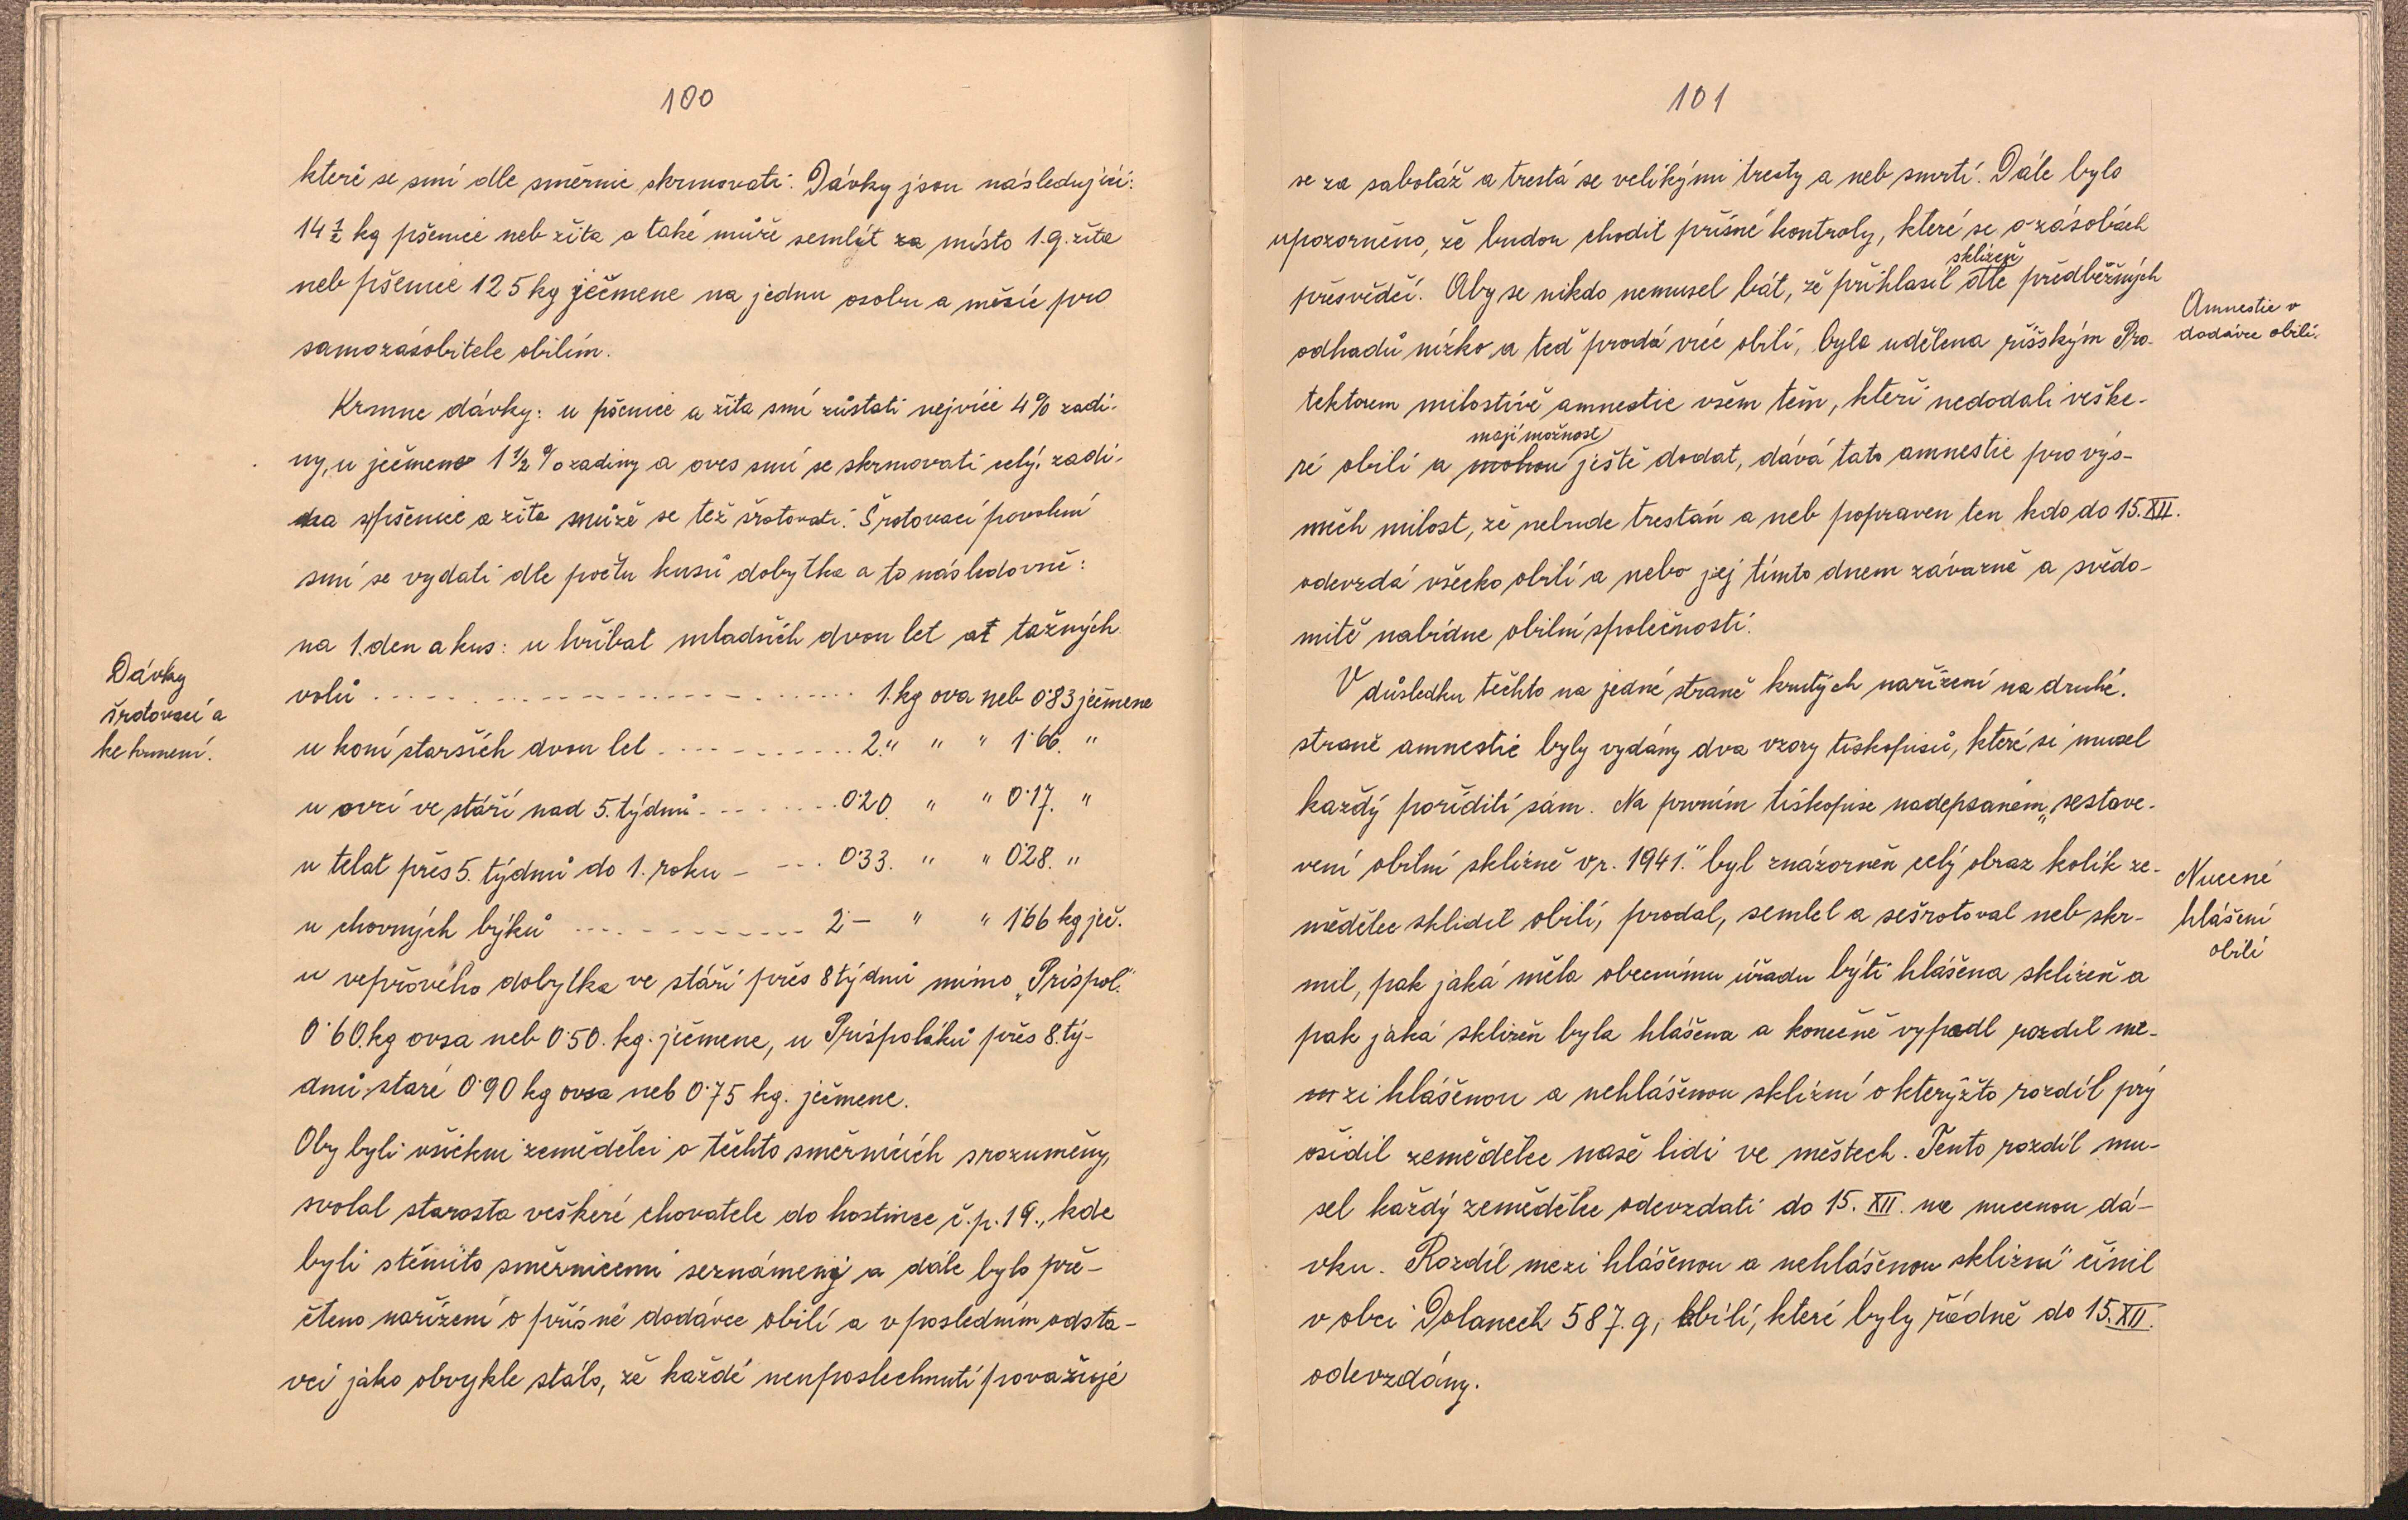 100
které se smí dle směrnic skrmovati. Dávky jsou následující:
14 ½ kg pšenice neb žita a také může semlýt za místo 1.q. žita
neb pšenice 125 kg ječmene na jednu osobu a měsíc pro
samozásobitele obilím.
Krmne dávky: u pšenice a žita smí zůstati nejvíce 4% zadi-
ny, u ječmene 1 1/2 % zadiny a oves smí se skrmovati celý, zadi-
na z pšenice a žita může se též šrotovati. Šrotovací povolení
smí se vydati dle počtu kusů dobytka a to následovně:
na 1. den a kus: u hříbat mladších dvou let at tažných
Dávky
šrotovací a
ke krmení.
volů . . . . . . . . . . 1. kg ova neb 0·83 ječmene
u koní starších dvou let . . . . . . . . 2. " " " 1·66. "
u ovcí ve stáří nad 5. týdnů . . . . . . . 0·20. " " 0·17. "
u telat přes 5. týdnů do 1. roku – – . . 0·33. " " 0·28. "
u chovných býků . . . . . . . . . 2·– " " 1·66 kg ječ.
u vepřového dobytka ve stáří přes 8 týdnů mimo „Príspol."
0·60. kg ovsa neb 0·50. kg. ječmene, u Príspoláků přes 8. tý-
dnů staré 0·90 kg ovsa neb 0·75 kg. ječmene.
Aby byli všichni zemědělci o těchto směrnicích srozuměny,
svolal starosta veškeré chovatele do hostince č.p. 19., kde
byli stěmito směrnicemi seznámeny a dále bylo pře-
čteno nařízení o přísné dodávce obilí a v posledním odsta-
vci jako obvykle stálo, že každé neuposlechnutí považuje
101
se za sabotáž a trestá se velikými tresty a neb smrtí. Dále bylo
upozorněno, že budou chodit přísné kontroly, které se o zásobách
sklizeň
přesvědčí. Aby se nikdo nemusel bát, že přihlasil dle předběžných
Amnestie v
dodávce obilí.
odhadů nízko a teď prodá více obilí, byla udělena říšským Pro-
tektorem milostivě amnestie všem těm, kteří nedodali veške-
mají možnost
ré obilí a mohou ještě dodat, dává tato amnestie pro výs-
měch milost, že nebude trestán a neb popraven ten kdo do 15. XII.
odevzdá všecko obilí a nebo jej tímto dnem závazně a svědo-
mitě nabídne obilní společnosti.
V důsledku těchto na jedné straně krutých nařízení na druhé.
straně amnestie byly vydány dva vzory tiskopisů, které si musel
každý poříditi sám. Na prvním tiskopise nadepsaném „sestave-
vení obilní sklizně v r. 1941." byl znázorněn celý obraz kolik ze-
Nucené
hlášení
obilí
mědělec sklidil obilí, prodal, semlel a sešrotoval neb skr-
mil, pak jaká měla obecnímu úřadu býti hlášena sklizeň a
pak jaká sklizeň byla hlášena a konečně vypadl rozdíl me-
zi hlášenou a nehlášenou sklizní o kterýžto rozdíl prý
ošidil zemědělec naše lidi ve městech. Tento rozdíl mu-
sel každý zemědělec odevzdati do 15. XII. na nucenou dá-
vku. Rozdíl mezi hlášenou a nehlášenou sklizní" činil
v obci Dolanech 587. q, obilí, které byly řádně do 15. XII.
odevzdány.